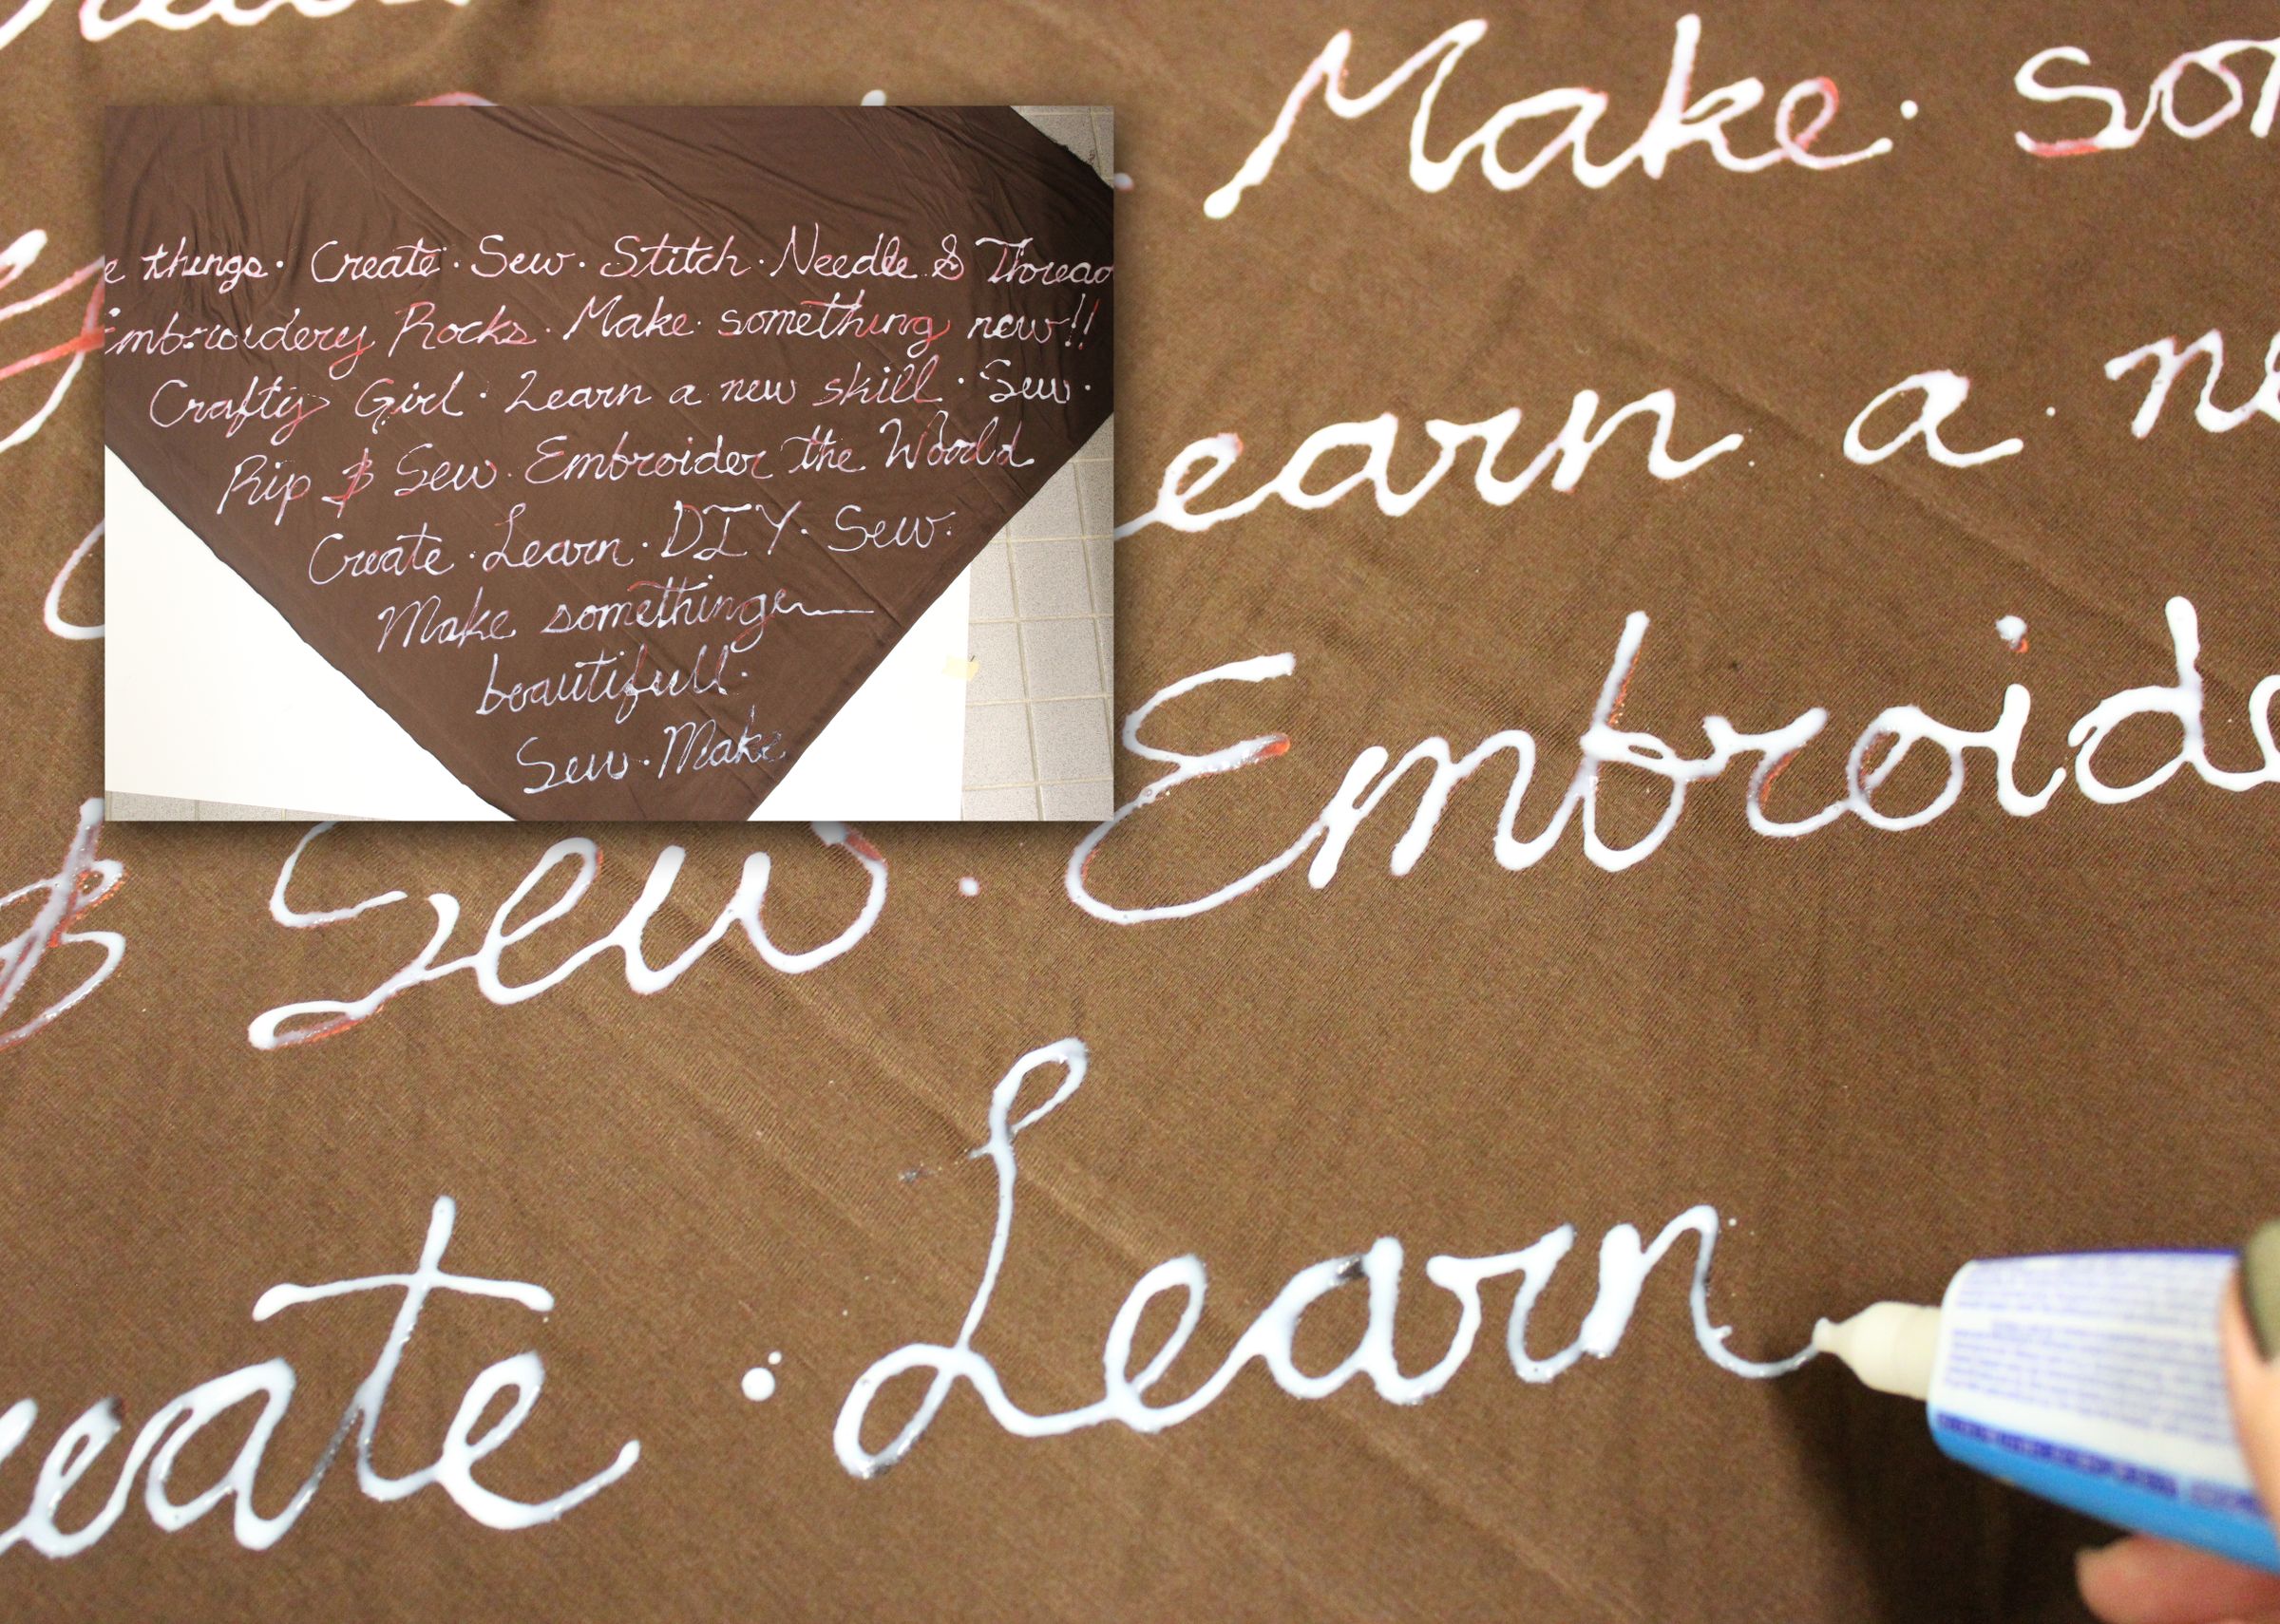 e things · Create · Sew · Stitch · Needle & Thread
Embroidery Rocks · Make · something new!!
Crafty Girl · Learn a new skill · Sew ·
Rip & Sew · Embroider the World
Create · Learn · DIY · Sew ·
Make something
beautifull ·
Sew · Make
Make · som
earn a · ne
& Sew · Embroide
reate · Learn